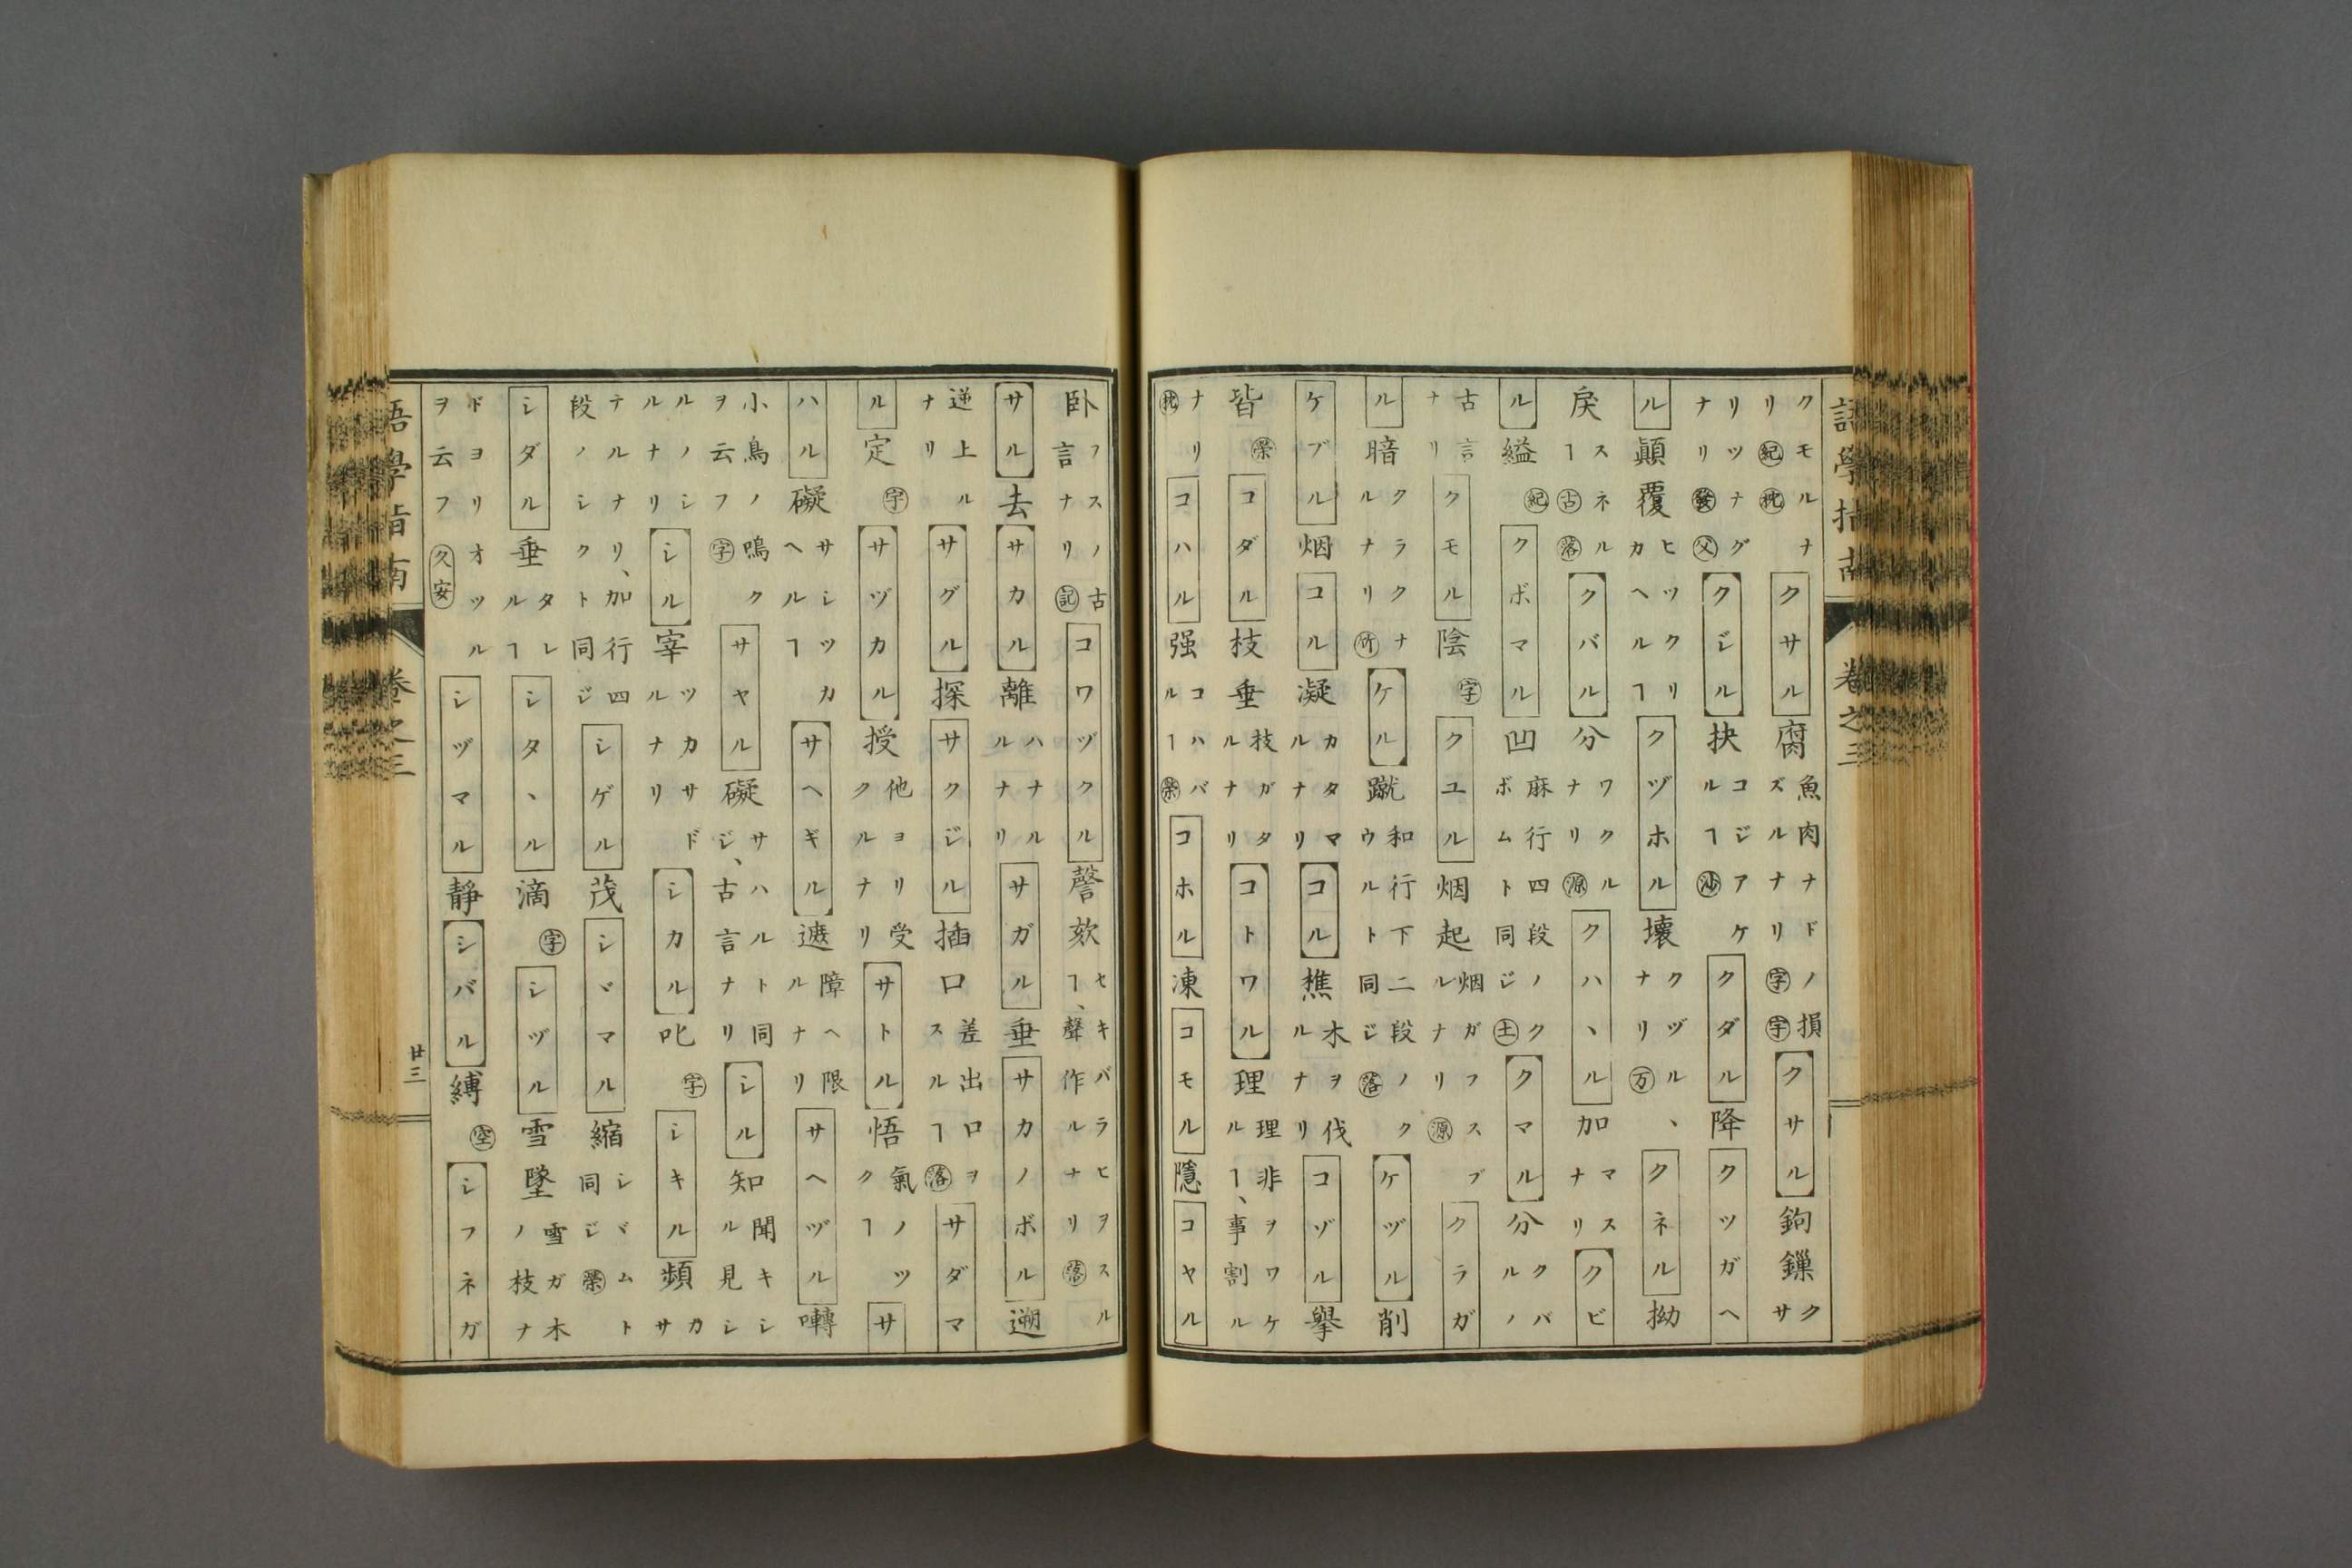 語學指南 卷之三
クモルナリ紀枕クサル腐魚肉ナドノ損ズルナリ字字クサル鉤鏁クサ
リツナグナリ發父クジル抉コジアケルヿ沙クダル降クツガヘ
ル顚覆ヒツクリカヘルヿクヅホル壞クヅル、ナリ万クネル拗
戾スネルヿ古落クバル分ワクルナリ源クハヽル加マスナリクビ
ル縊紀クボマル凹麻行四段ノクボムト同ジ土クマル分クバルノ
古言ナリクモル陰字クユル烟起烟ガフスブルナリ源クラガ
ル暗クラクナルナリ竹ケル蹴和行下二段ノクウルト同ジ落ケヅル削
ケブル烟コル凝カタマルナリコル樵木ヲ伐ルナリコゾル擧
皆榮コダル枝垂枝ガタルナリコトワル理理非ヲワケルヿ、事割ル
ナリ枕コハル强コハバルヿ榮コホル凍コモル隱コヤル
臥フスノ古言ナリ記コワヅクル謦欬セキバラヒヲスルヿ、聲作ルナリ落
サル去サカル離ハナルルナリサガル垂サカノボル遡
逆上ルナリサグル探サクジル插口差出口ヲスルヿ落サダマ
ル定字サヅカル授他ヨリ受クルナリサトル悟氣ノツクヿサ
ハル礙サシツカヘルヿサヘギル遮障ヘ限ルナリサヘヅル囀
小鳥ノ鳴クヲ云フ字サヤル礙サハルト同ジ、古言ナリシル知聞キシル見シ
ルノシルナリシル宰ツカサドルナリシカル叱字シキル頻カサ
ナルナリ、加行四段ノシクト同ジシゲル茂シヾマル縮シヾムト同ジ榮
シダル垂タレルヿシタヽル滴字シヅル雪墜雪ガ木ノ枝ナ
ドヨリオツルヲ云フ久安シヅマル靜シバル縛空シフネガ
語學指南 卷之三 廿三